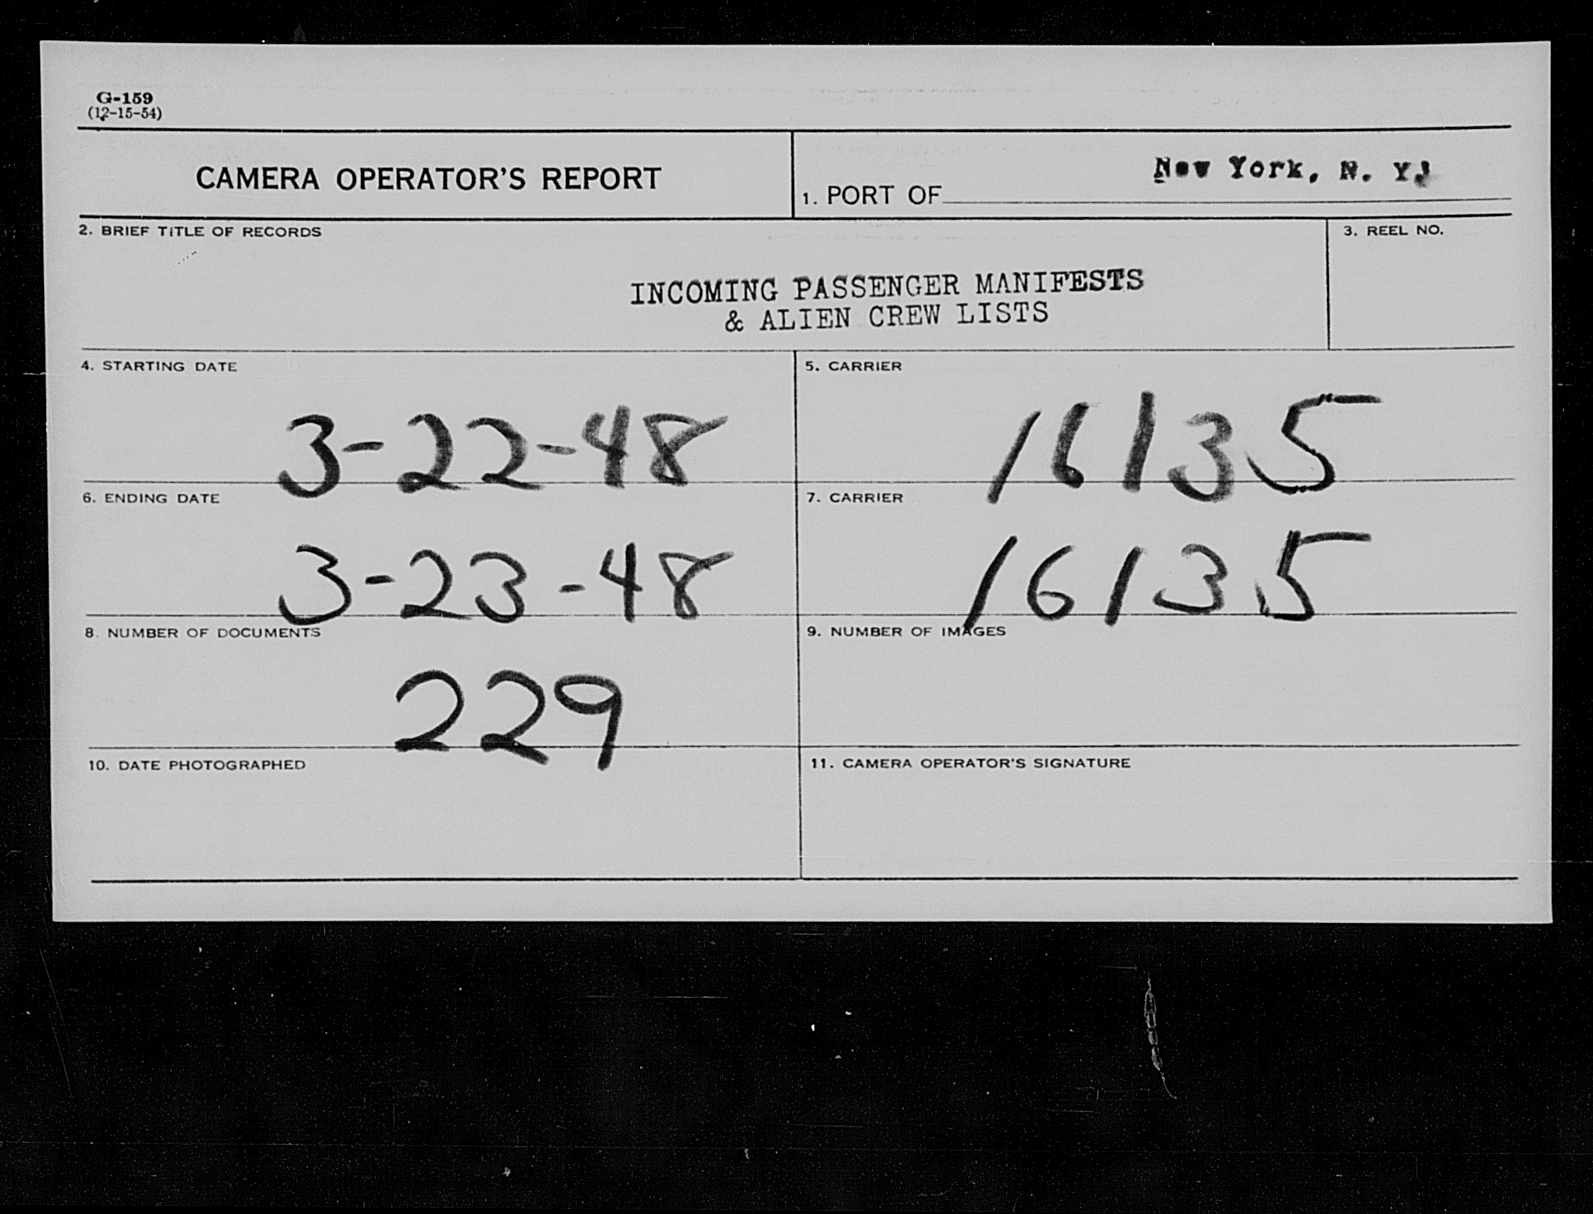 G-159
(12-15-54)
CAMERA OPERATOR'S REPORT
1. PORT OF New York, N. Y.
2. BRIEF TITLE OF RECORDS
3. REEL NO.
INCOMING PASSENGER MANIFESTS
& ALIEN CREW LISTS
4. STARTING DATE
5. CARRIER
3-22-48
16135
6. ENDING DATE
7. CARRIER
3-23-48
16135
8. NUMBER OF DOCUMENTS
9. NUMBER OF IMAGES
229
10. DATE PHOTOGRAPHED
11. CAMERA OPERATOR'S SIGNATURE